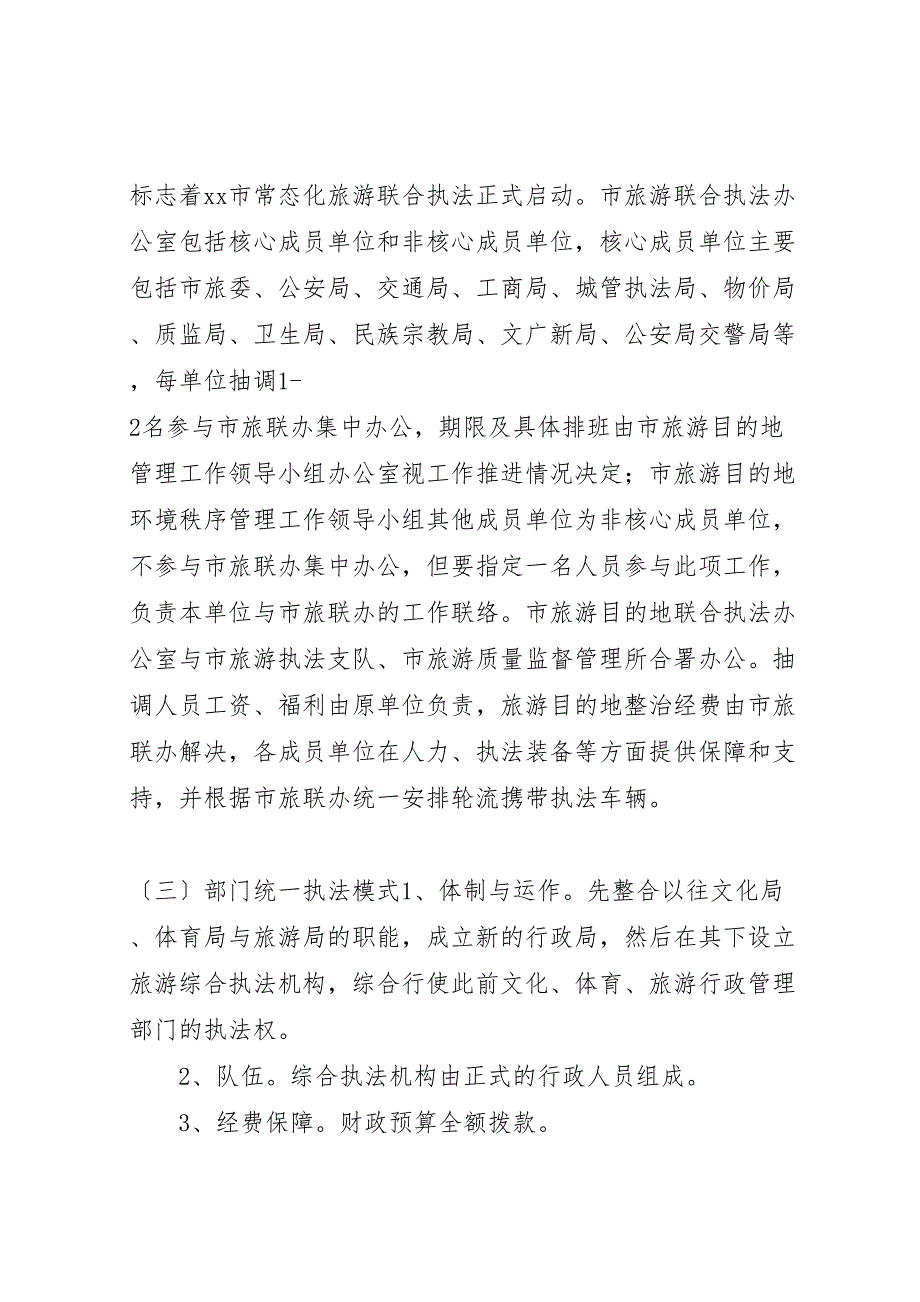 标志着xx市常态化旅游联合执法正式启动。市旅游联合执法办
公室包括核心成员单位和非核心成员单位，核心成员单位主要
包括市旅委、公安局、交通局、工商局、城管执法局、物价局
、质监局、卫生局、民族宗教局、文广新局、公安局交警局等
，每单位抽调1-
2名参与市旅联办集中办公，期限及具体排班由市旅游目的地
管理工作领导小组办公室视工作推进情况决定；市旅游目的地
环境秩序管理工作领导小组其他成员单位为非核心成员单位，
不参与市旅联办集中办公，但要指定一名人员参与此项工作，
负责本单位与市旅联办的工作联络。市旅游目的地联合执法办
公室与市旅游执法支队、市旅游质量监督管理所合署办公。抽
调人员工资、福利由原单位负责，旅游目的地整治经费由市旅
联办解决，各成员单位在人力、执法装备等方面提供保障和支
持，并根据市旅联办统一安排轮流携带执法车辆。
〔三〕部门统一执法模式1、体制与运作。先整合以往文化局
、体育局与旅游局的职能，成立新的行政局，然后在其下设立
旅游综合执法机构，综合行使此前文化、体育、旅游行政管理
部门的执法权。
2、队伍。综合执法机构由正式的行政人员组成。
3、经费保障。财政预算全额拨款。